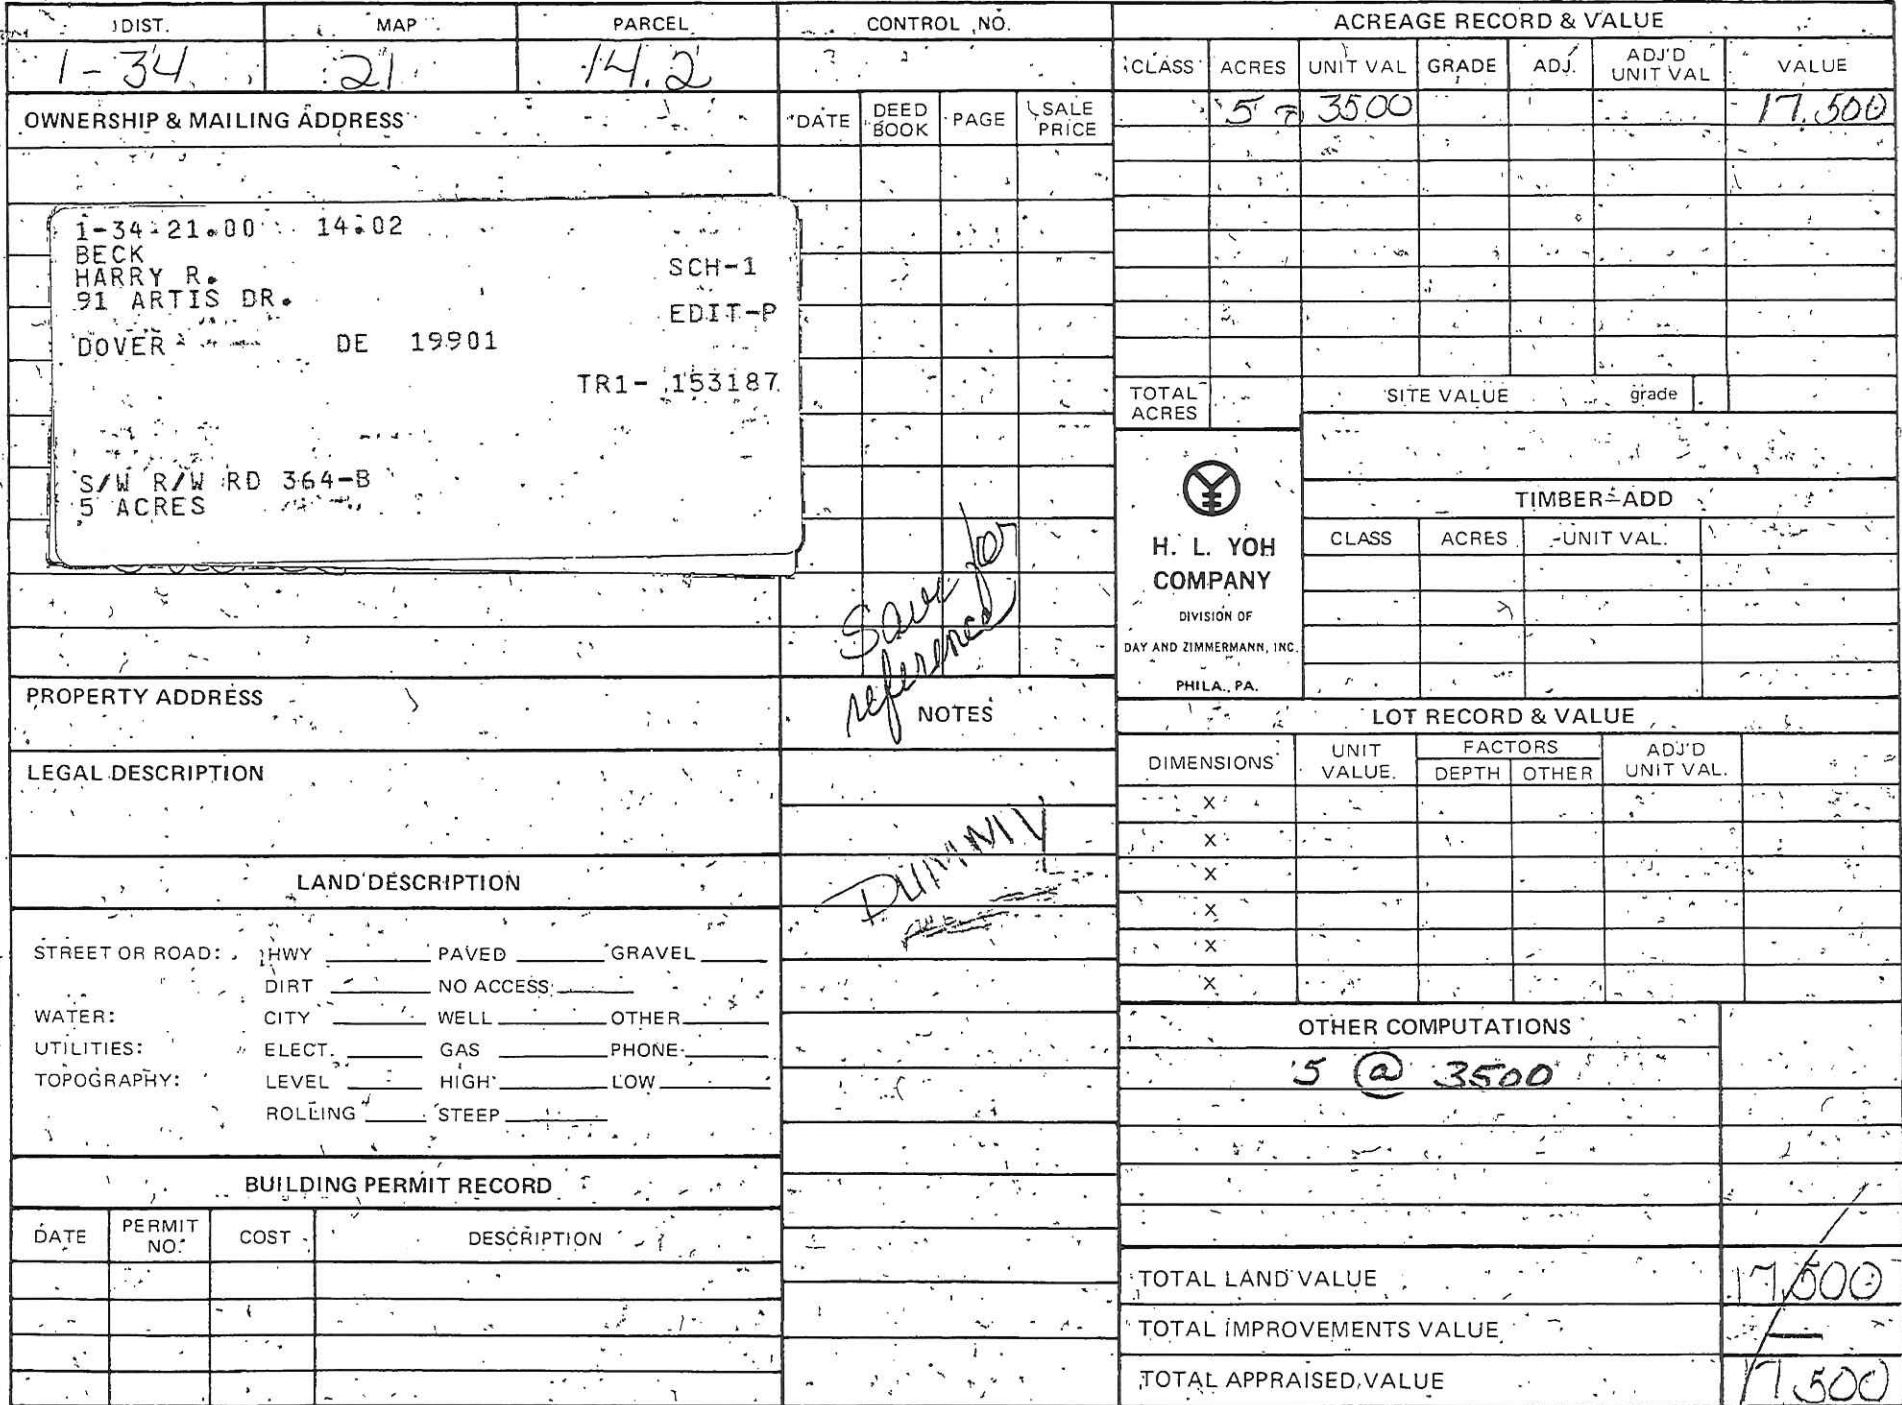 DIST. MAP PARCEL CONTROL NO.
1-34 21 14.2
OWNERSHIP & MAILING ADDRESS
DATE DEED BOOK PAGE SALE PRICE
1-34-21.00 14.02
BECK
HARRY R. SCH-1
91 ARTIS DR.
EDIT-P
DOVER DE 19901
TR1- 153187
S/W R/W RD 364-B
5 ACRES
Save for
reference
PROPERTY ADDRESS
NOTES
LEGAL DESCRIPTION
DUMMY
LAND DESCRIPTION
STREET OR ROAD: HWY PAVED GRAVEL
DIRT NO ACCESS
WATER: CITY WELL OTHER
UTILITIES: ELECT. GAS PHONE
TOPOGRAPHY: LEVEL HIGH LOW
ROLLING STEEP
BUILDING PERMIT RECORD
DATE PERMIT NO. COST DESCRIPTION
ACREAGE RECORD & VALUE
CLASS ACRES UNIT VAL GRADE ADJ. ADJ'D UNIT VAL VALUE
5 3500 17,500
TOTAL ACRES
SITE VALUE grade
H. L. YOH
COMPANY
DIVISION OF
DAY AND ZIMMERMANN, INC.
PHILA., PA.
TIMBER-ADD
CLASS ACRES UNIT VAL.
LOT RECORD & VALUE
DIMENSIONS UNIT VALUE FACTORS ADJ'D UNIT VAL.
DEPTH OTHER
X
X
X
X
X
X
OTHER COMPUTATIONS
5 @ 3500
TOTAL LAND VALUE 17,500
TOTAL IMPROVEMENTS VALUE —
TOTAL APPRAISED VALUE 17,500